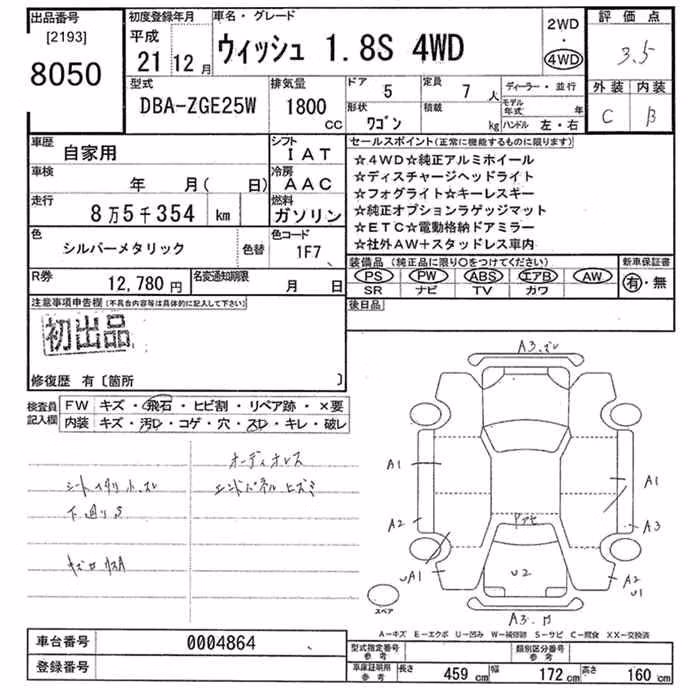 出品番号
[2193]
8050
初度登録年月
平成
21年 12月
車名・グレード
ウィッシュ 1.8S 4WD
2WD
・
4WD
評価点
3.5
外装 内装
C B
型式
DBA-ZGE25W
排気量
1800
CC
ドア 5
定員 7 人
形状 ワゴン
積載 kg
ディーラー・並行
モデル年式 年
ハンドル 左・右
車歴 自家用
シフト IAT
車検 年 月( 日)
冷房 AAC
走行 8万5千354 km
燃料 ガソリン
色 シルバーメタリック 色替
色コード 1F7
R券 12,780円
名変通知期限 月 日
セールスポイント(正常に機能するものに限ります)
☆4WD☆純正アルミホイール
☆ディスチャージヘッドライト
☆フォグライト☆キーレスキー
☆純正オプションラゲッジマット
☆ETC☆電動格納ドアミラー
☆社外AW+スタッドレス車内
装備品(純正品に限り○をつけてください)
PS PW ABS エアB AW
SR ナビ TV カワ
新車保証書
有・無
後日品
注意事項申告欄(不具合内容等は具体的に記入して下さい)
初出品
修復歴 有〔箇所 〕
検査員記入欄
FW キズ・飛石・ヒビ割・リペア跡・×要
内装 キズ・汚レ・コゲ・穴・スレ・キレ・破レ
オーディオレス
エンドパネルヒズミ
下廻りS
A3
A1
A1
A2
A3
uA1
U2
A2
u1
A3
スペア
A-キズ E-エクボ U-凹み W-補修跡 S-サビ C-腐食 XX-交換済
車台番号 0004864
登録番号
型式指定番号 参考
類別区分番号 参考
車庫証明用 参考
長さ 459cm 幅 172cm 高さ 160cm